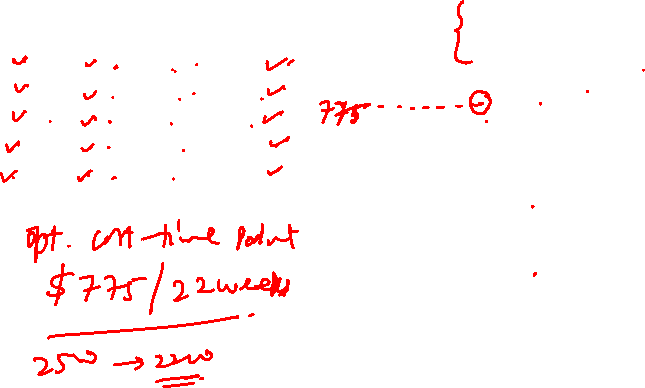 775
opt. cost-time point
$775/22weeks
2500 → 2200